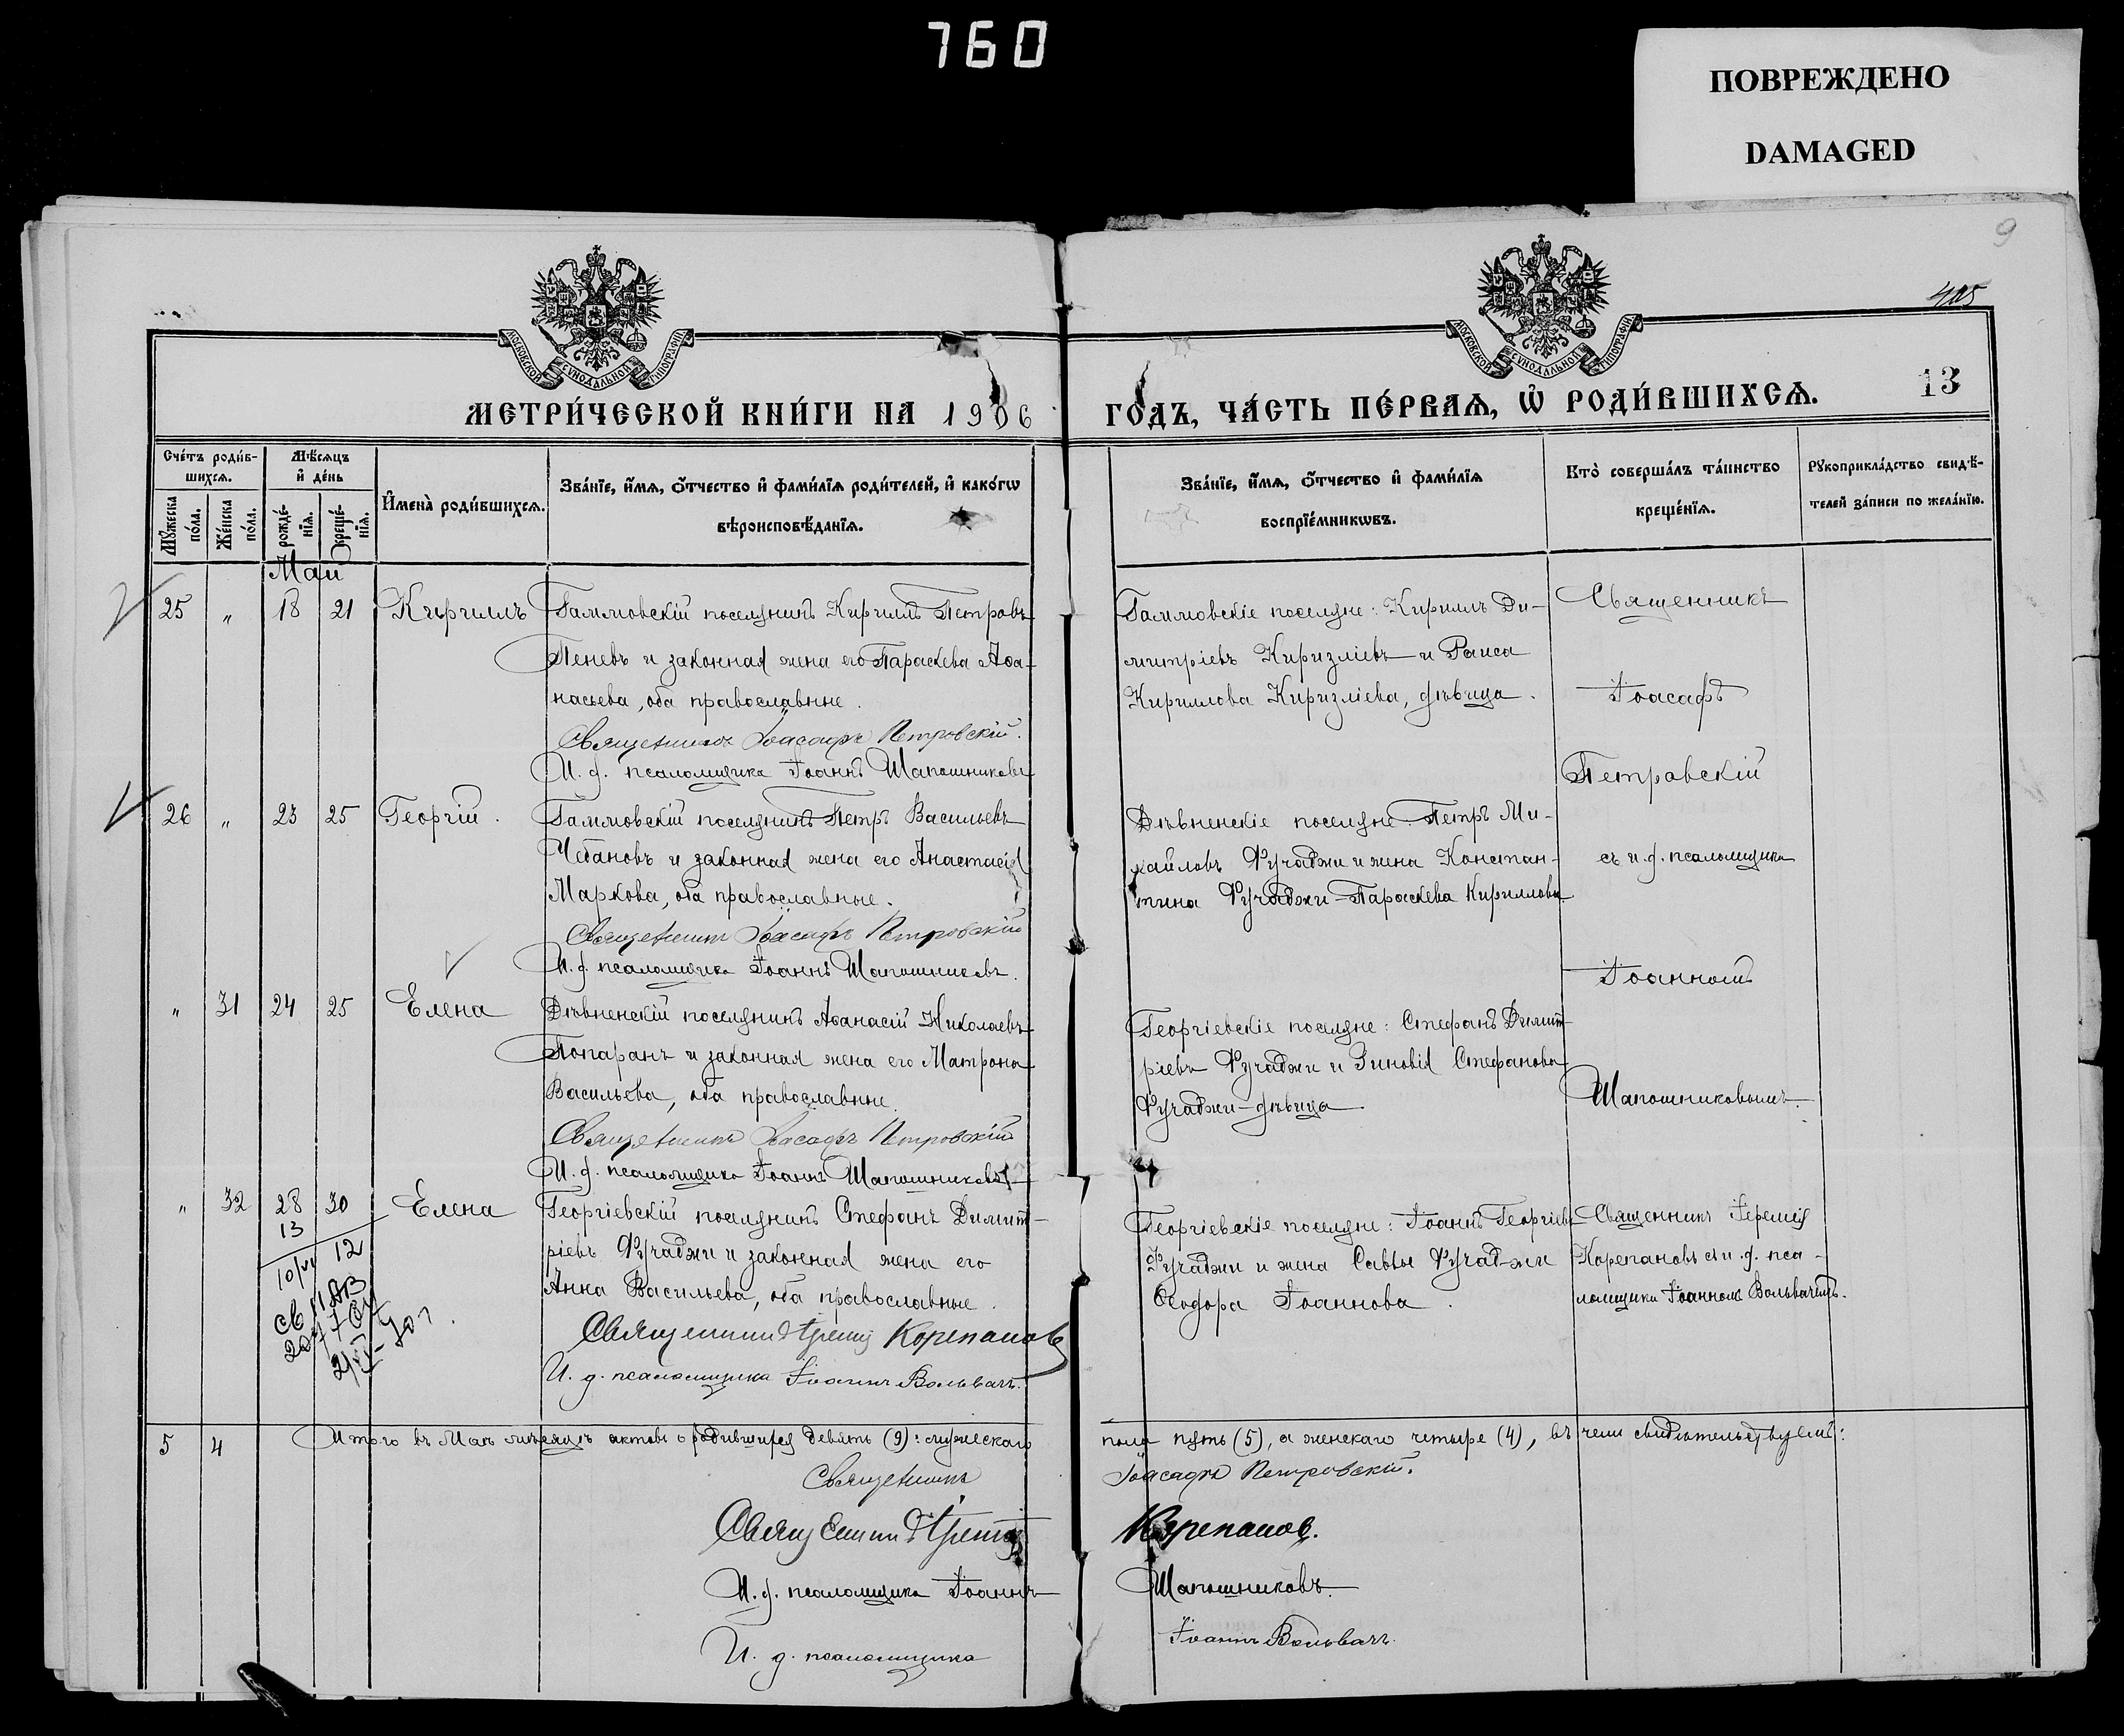 760
ПОВРЕЖДЕНО
DAMAGED
9
405
МОСКОВСКОЙ СѴНОДАЛЬНОЙ ТИПОГРАФІИ
МОСКОВСКОЙ СѴНОДАЛЬНОЙ ТИПОГРАФІИ
МЕТРИ́ЧЕСКОЙ КНИ́ГИ НА 1906 ГОДЪ, ЧА́СТЬ ПЕ́РВАѦ, Ѡ҆ РОДИ́ВШИХСѦ.
13
Сче́тъ роди́в-
шихсѧ.
Мѣ́сѧцъ
и҆ де́нь
Мꙋ́жеска
по́ла.
Же́нска
по́ла.
рожде́-
нїѧ.
креще́-
нїѧ.
И҆мена̀ роди́вшихсѧ.
Зва́нїе, и҆́мѧ, ѻ҆́тчество и҆ фами́лїѧ роди́телей, и҆ како́гѡ
вѣроисповѣ́данїѧ.
Зва́нїе, и҆́мѧ, ѻ҆́тчество и҆ фами́лїѧ
воспрїе́мникѡвъ.
Кто̀ соверша́лъ та́инство
креще́нїѧ.
Рꙋкоприкла́дство свидѣ́-
телей за́писи по жела́нїю.
Май
25 „ 18 21 Кириллъ
Гаммовскій поселянинъ Кириллъ Петровъ
Пеневъ и законная жена его Параскева Аѳа-
насьева, оба православные.
Священникъ Іоасафъ Петровскій.
И. д. псаломщика Іоаннъ Шапошниковъ
Гаммовскіе поселяне: Кириллъ Ди-
митріевъ Киризліевъ и Раиса
Кириллова Киризліева, дѣвица.
Священникъ
Іоасафъ
Петровскій
съ и. д. псаломщика
Іоанномъ
Шапошниковымъ.
26 „ 23 25 Георгій.
Гаммовскій поселянинъ Петръ Васильевъ
Чебановъ и законная жена его Анастасія
Маркова, оба православные.
Священникъ Іоасафъ Петровскій
И. д. псаломщика Іоаннъ Шапошниковъ.
Дѣвненскіе поселяне: Петръ Ми-
хайловъ Фучаджи и жена Констан-
тина Фучаджи Параскева Кириллова
„ 31 24 25 Елена
Дѣвненскій поселянинъ Аѳанасій Николаевъ
Попаранъ и законная жена его Матрона
Васильева, оба православные.
Священникъ Іоасафъ Петровскій
И. д. псаломщика Іоаннъ Шапошниковъ
Георгіевскіе поселяне: Стефанъ Димит-
ріевъ Фучаджи и Зиновія Стефанова
Фучаджи дѣвица
„ 32 28 30 Елена
13
10/VI 12
Георгіевскій поселянинъ Стефанъ Димит-
ріевъ Фучаджи и законная жена его
Анна Васильева, оба православные.
Священникъ Іеремія Корепановъ
И. д. псаломщика Іоаннъ Вольвачъ.
Георгіевскіе поселяне: Іоаннъ Георгіевъ
Фучаджи и жена Саввы Фучаджи
Ѳеодора Іоаннова.
Священникъ Іеремія
Корепановъ съ и. д. пса-
ломщика Іоанномъ Вольвачемъ.
5 4 Итого въ Маѣ мѣсяцѣ актовъ о родившихся девять (9): мужескаго пола пять (5), а женскаго четыре (4), въ чемъ свидѣтельствуемъ:
Священникъ Іоасафъ Петровскій.
Священникъ Іеремія Корепановъ.
И. д. псаломщика Іоаннъ Шапошниковъ.
И. д. псаломщика Іоаннъ Вольвачъ.